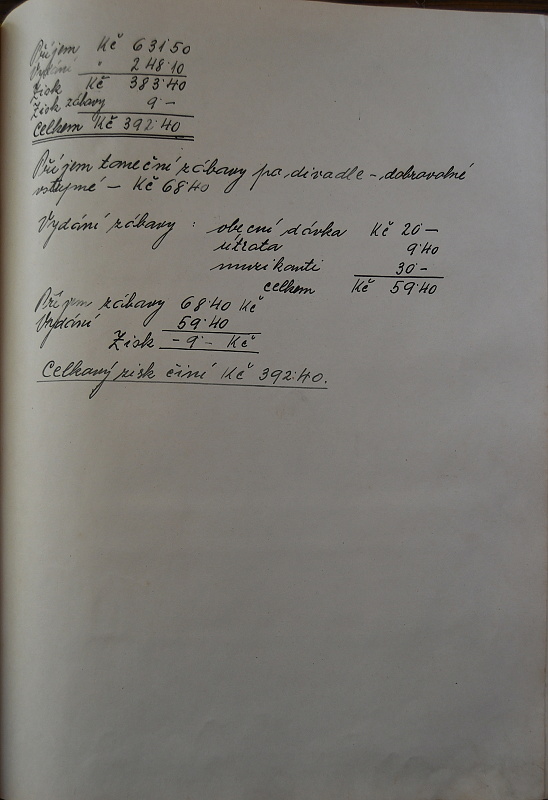 Příjem Kč 631·50
Vydání " 248·10
Zisk Kč 383·40
Zisk zábavy 9·–
Celkem Kč 392·40
Příjem taneční zábavy po divadle – dobrovolné
vstupné – Kč 68·40
Vydání zábavy : obecní dávka Kč 20–
útrata 9·40
muzikanti 30·–
celkem Kč 59·40
Příjem zábavy 68·40 Kč
Vydání 59·40
Zisk – 9·– Kč
Celkový zisk činí Kč 392·40.